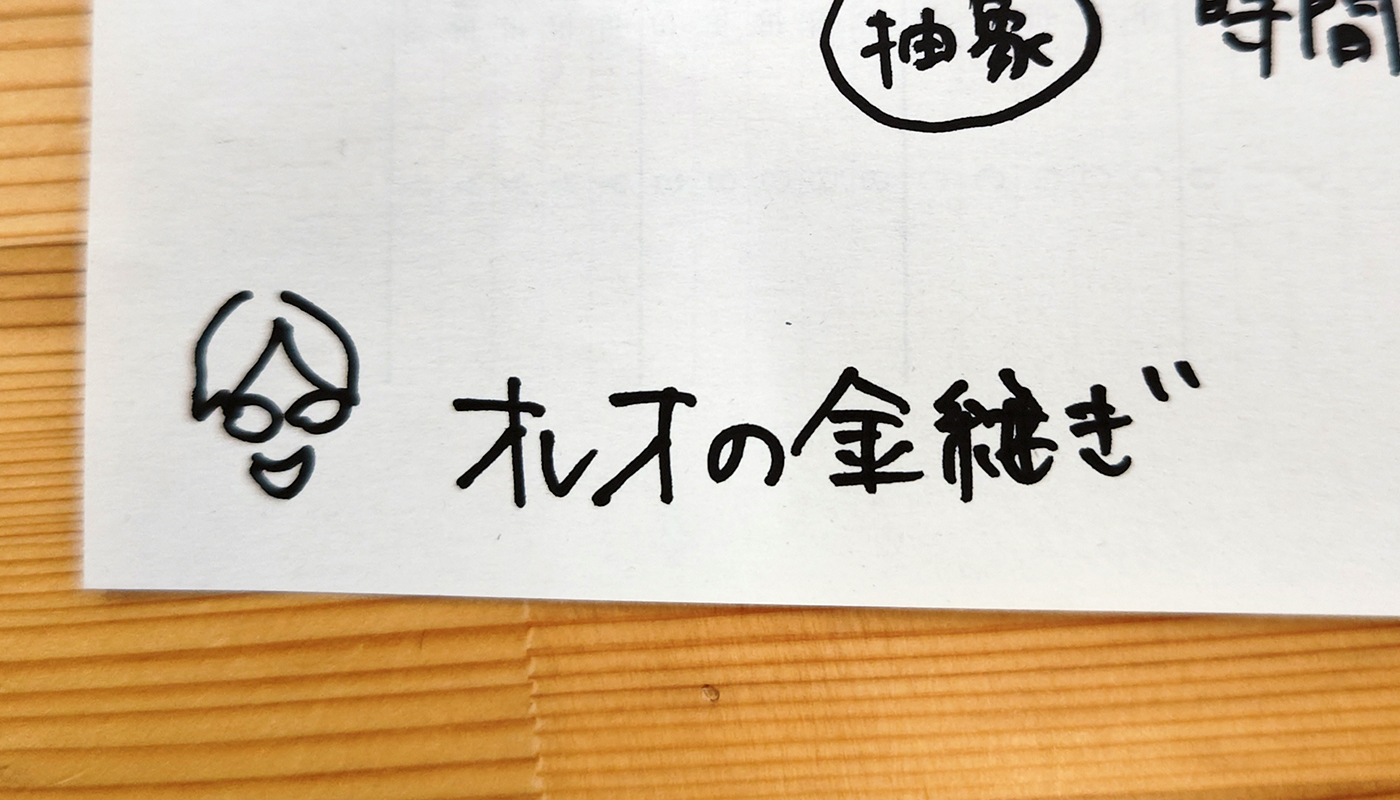 抽象 時間
オレオの金継ぎ